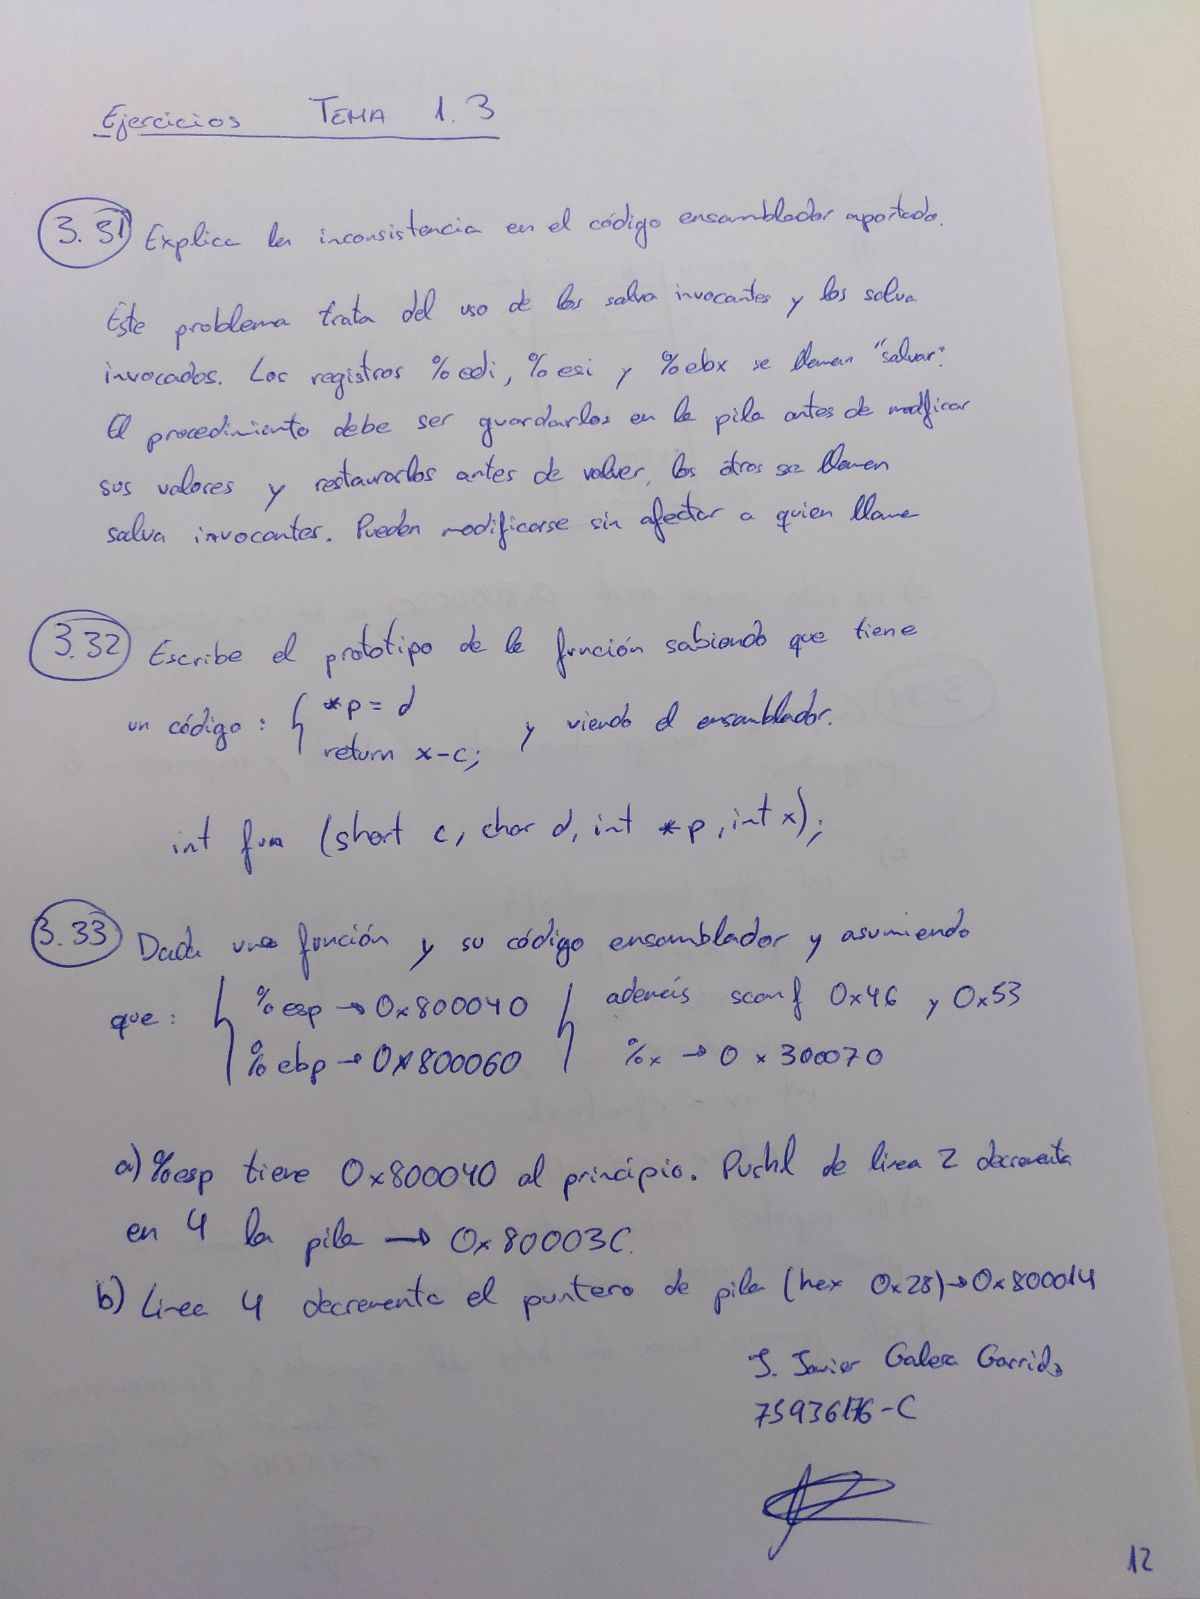 Ejercicios TEMA 1.3
3.31 Explica la inconsistencia en el código ensamblador aportado.
Este problema trata del uso de los salva invocantes y los salva
invocados. Los registros %edi, %esi y %ebx se llaman "salvar".
El procedimiento debe ser guardarlos en la pila antes de modificar
sus valores y restaurarlos antes de volver, los otros se llaman
salva invocantes. Pueden modificarse sin afectar a quien llame
3.32 Escribe el prototipo de la función sabiendo que tiene
un código: { *p = d
return x-c; y viendo el ensamblador.
int fun (short c, char d, int *p, int x);
3.33 Dada una función y su código ensamblador y asumiendo
que: { %esp → 0x800040 } además scanf 0x46 y 0x53
%ebp → 0x800060 %x → 0x300070
a) %esp tiene 0x800040 al principio. Pushl de linea 2 decrementa
en 4 la pila → 0x80003C.
b) Linea 4 decrementa el puntero de pila (hex 0x28) → 0x800014
J. Javier Galera Garrido
75936176-C
12